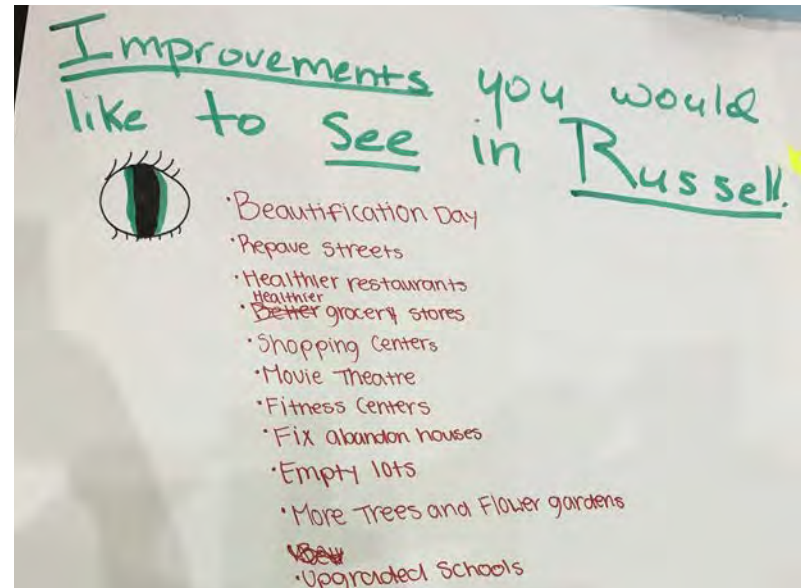 Improvements you would
like to See in Russell.
• Beautification Day
• Repave streets
• Healthier restaurants
Healthier
• Better grocery stores
• Shopping Centers
• Movie Theatre
• Fitness Centers
• Fix abandon houses
• Empty lots
• More Trees and Flower gardens
• Upgraded Schools